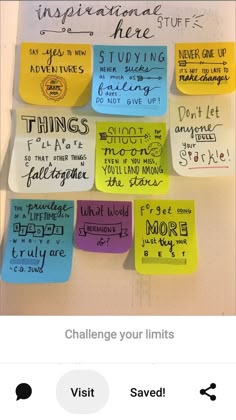 inspirational
STUFF
here
SAY yes TO NEW
ADVENTURES
STUDYING
NEVER SUCKS
AS MUCH AS
failing
DO NOT GIVE UP!
NEVER GIVE UP
IT'S NOT TOO LATE TO
MAKE CHANGES
THINGS
FALL APART
SO THAT OTHER THINGS
CAN
fall together
SHOOT
moon
EVEN IF YOU MISS,
YOU'LL LAND AMONG
the stars
Don't Let
anyone
DULL
your
Sparkle!
The privilege
of a LIFETIME IS
TO BECOME
WHO YOU
truly are
-C.G. JUNG
What Would
HERMIONE
do?
Forget
MORE
just try your
BEST
Challenge your limits
Visit
Saved!